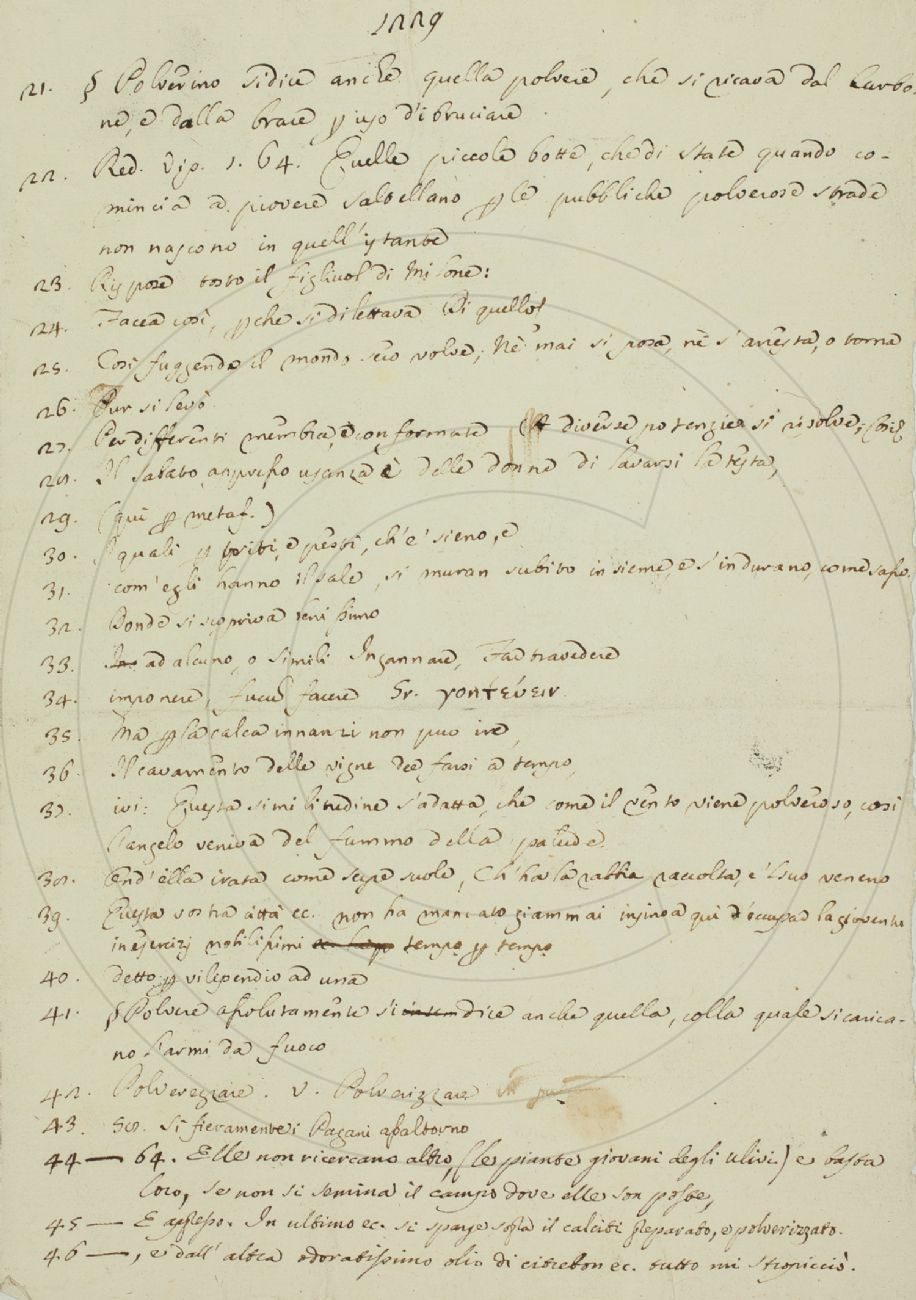 1229
21. § Polverino si dice anche quella polvere, che si ricava dal Carbo-
ne, e dalla brace p uso di bruciare.
22. Red. Vip. 1. 64. Quelle piccole botte, che di state quando co-
mincia a piovere saltellano p le pubbliche polverose strade
non nascono in quell'istante
23. Rispose tosto il figliuol di Milone:
24. Facea così, pche si dilettava Di quello
25. Così fuggendo il mondo seco volve; Nè mai si posa, nè s'arresta, o torna
26. Pur si levò
27. Per differenti membra, e conformate diverse potenzie si risolve,
28. Il Sabato appresso usanza è delle donne di lavarsi la testa,
29. (qui p metaf.)
30. quali p triti, e pesti, ch'e' sieno, e
31. com'egli hanno il sale, si muran subito insieme, e s'indurano, come sasso.
32. Donde si scopriva benissimo
33. ad alcuno, o simili Ingannare, Far travedere
34. imponere, fucum facere Gr. γοητεύειν.
35. Ma p la calca innanzi non può ire,
36. Il cavamento delle vigne dee farsi a tempo,
37. ivi: Questa similitudine s'adatta, che come il vento viene polveroso, così
l'angelo veniva del fummo della palude.
38. Ond'ella irata come serpe suole, Ch'ha la rabbia raccolta, e 'l suo veneno
39. Questa vostra città ec. non ha mancato giammai insino a quì d'occupar la gioventù
in esercizj nobilissimi tempo p tempo
40. detto p vilipendio ad una
41. § Polvere assolutamente si dice anche quella, colla quale si carica-
no l'armi da fuoco
42. Polverezzare. V. Polverizzare
43. 58. Si fieramente i Pagani assaltorno
44 — 64. Elle non ricercano altro, (le piante giovani degli ulivi) e basta
loro, se non si semina il campo dove elle son poste,
45 — E appresso. In ultimo ec. si sparge sopra il calciti preparato, e polverizzato.
46 —, e dall' altra odoratissimo olio di citrebon ec. tutto mi stropicciò.